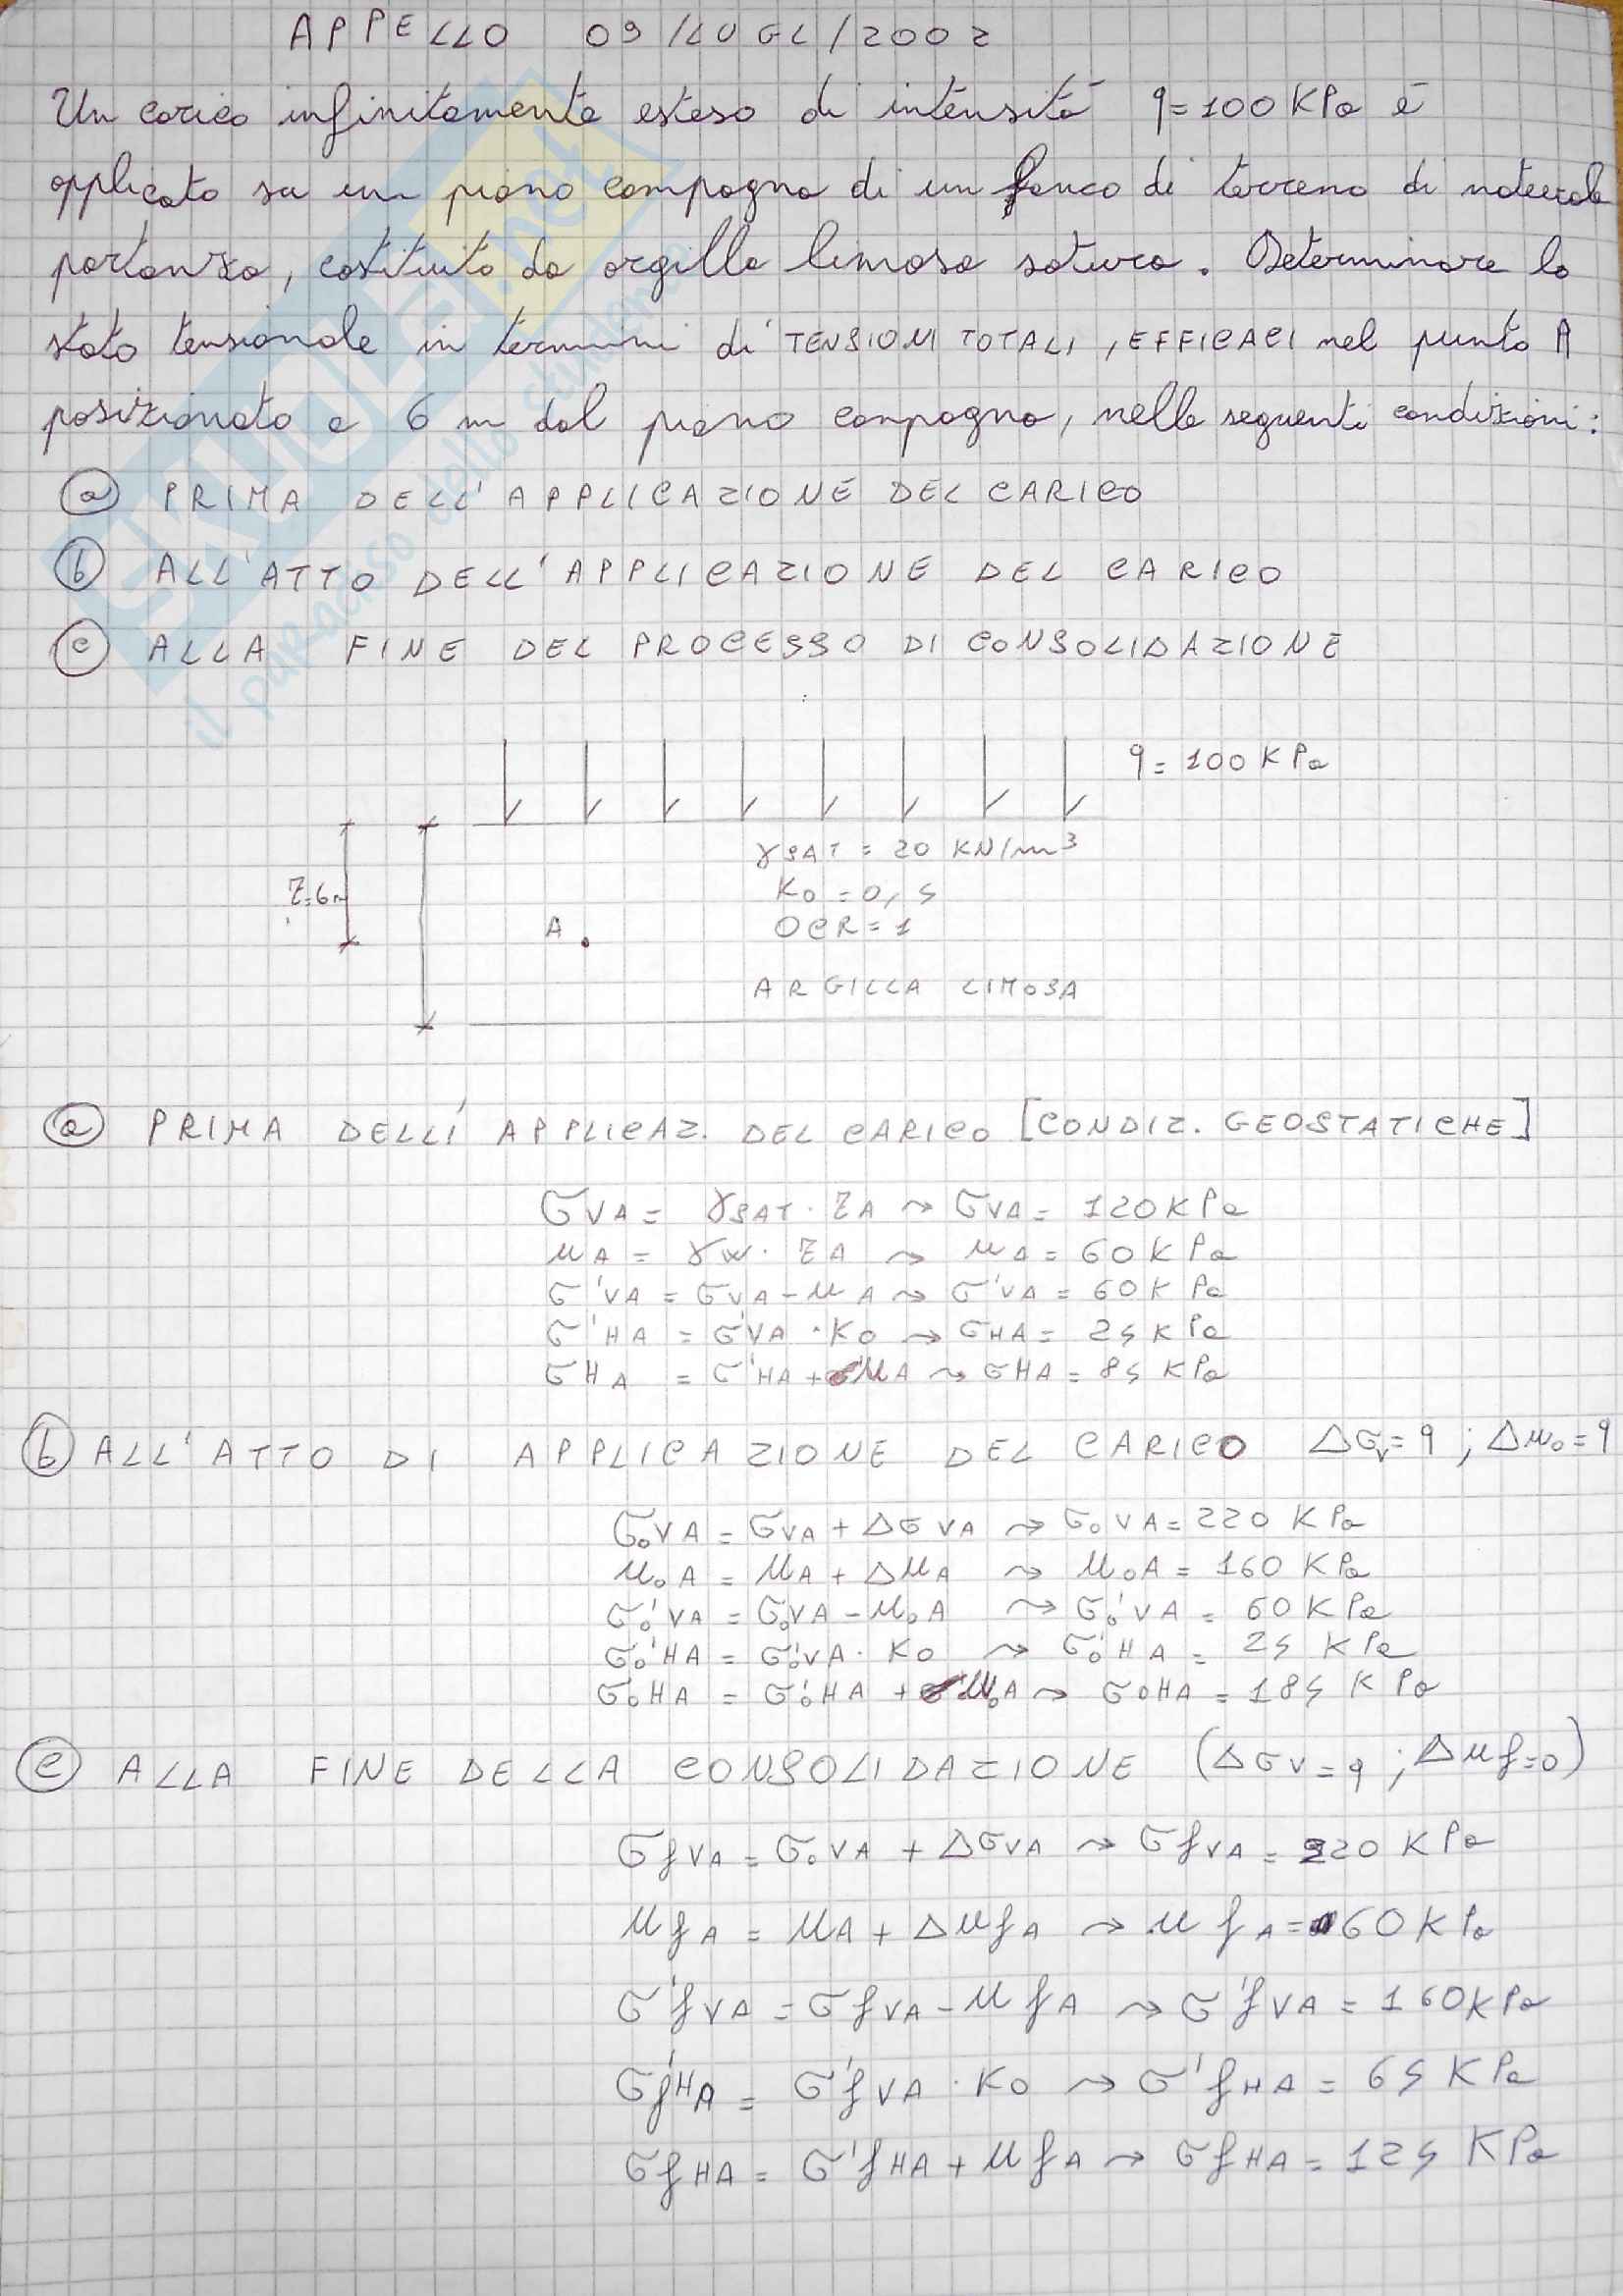 APPELLO 09/LUGL/2002
Un carico infinitamente esteso di intensità q=100 KPa è
applicato su un piano campagna di un banco di terreno di notevole
portanza, costituito da argilla limosa satura. Determinare lo
stato tensionale in termini di TENSIONI TOTALI, EFFICACI nel punto A
posizionato a 6 m dal piano campagna, nelle seguenti condizioni:
(a) PRIMA DELL'APPLICAZIONE DEL CARICO
(b) ALL'ATTO DELL'APPLICAZIONE DEL CARICO
(c) ALLA FINE DEL PROCESSO DI CONSOLIDAZIONE
q = 100 KPa
γSAT = 20 KN/m³
Z=6m
K0 = 0,5
A
OCR = 1
ARGILLA LIMOSA
(a) PRIMA DELL' APPLICAZ. DEL CARICO [CONDIZ. GEOSTATICHE]
σVA = γSAT · ZA ⇝ σVA = 120 KPa
uA = γw · ZA ⇝ uA = 60 KPa
σ'VA = σVA - uA ⇝ σ'VA = 60 KPa
σ'HA = σ'VA · K0 ⇝ σHA = 25 KPa
σHA = σ'HA + uA ⇝ σHA = 85 KPa
(b) ALL'ATTO DI APPLICAZIONE DEL CARICO Δσv = q ; Δu0 = q
σ0VA = σVA + ΔσVA ⇝ σ0VA = 220 KPa
u0A = uA + ΔuA ⇝ u0A = 160 KPa
σ0'VA = σ0VA - u0A ⇝ σ0'VA = 60 KPa
σ0'HA = σ0'VA · K0 ⇝ σ0'HA = 25 KPa
σ0HA = σ0'HA + u0A ⇝ σ0HA = 185 KPa
(c) ALLA FINE DELLA CONSOLIDAZIONE (ΔσV = q ; Δuf=0)
σfVA = σ0VA + ΔσVA ⇝ σfVA = 220 KPa
ufA = uA + ΔufA ⇝ ufA = 60 KPa
σ'fVA = σfVA - ufA ⇝ σ'fVA = 160 KPa
σ'fHA = σ'fVA · K0 ⇝ σ'fHA = 65 KPa
σfHA = σ'fHA + ufA ⇝ σfHA = 125 KPa